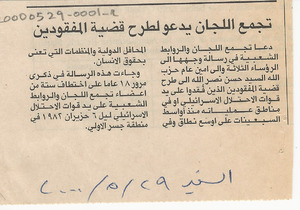 0000529-0001-R
تجمع اللجان يدعو لطرح قضية المفقودين
دعا تجمع اللجان والروابط
الشعبية في رسالة وجهها الى
الرؤساء الثلاثة والى امين عام حزب
الله السيد حسن نصر الله الى طرح
قضية المفقودين الذين فقدوا على يد
قوات الاحتلال الاسرائيلي او في
مناطق عملياته منذ أواسط
السبعينات على اوسع نطاق وفي
المحافل الدولية والمنظمات التي تعنى
بحقوق الانسان.
وجاءت هذه الرسالة في ذكرى
مرور ١٨ عاما على اختطاف ستة من
اعضاء تجمع اللجان والروابط
الشعبية على يد قوات الاحتلال
الاسرائيلي ليل ٦ حزيران ١٩٨٢ في
منطقة جسر الاولي.
السفير ٢٩/٥/٢٠٠٠